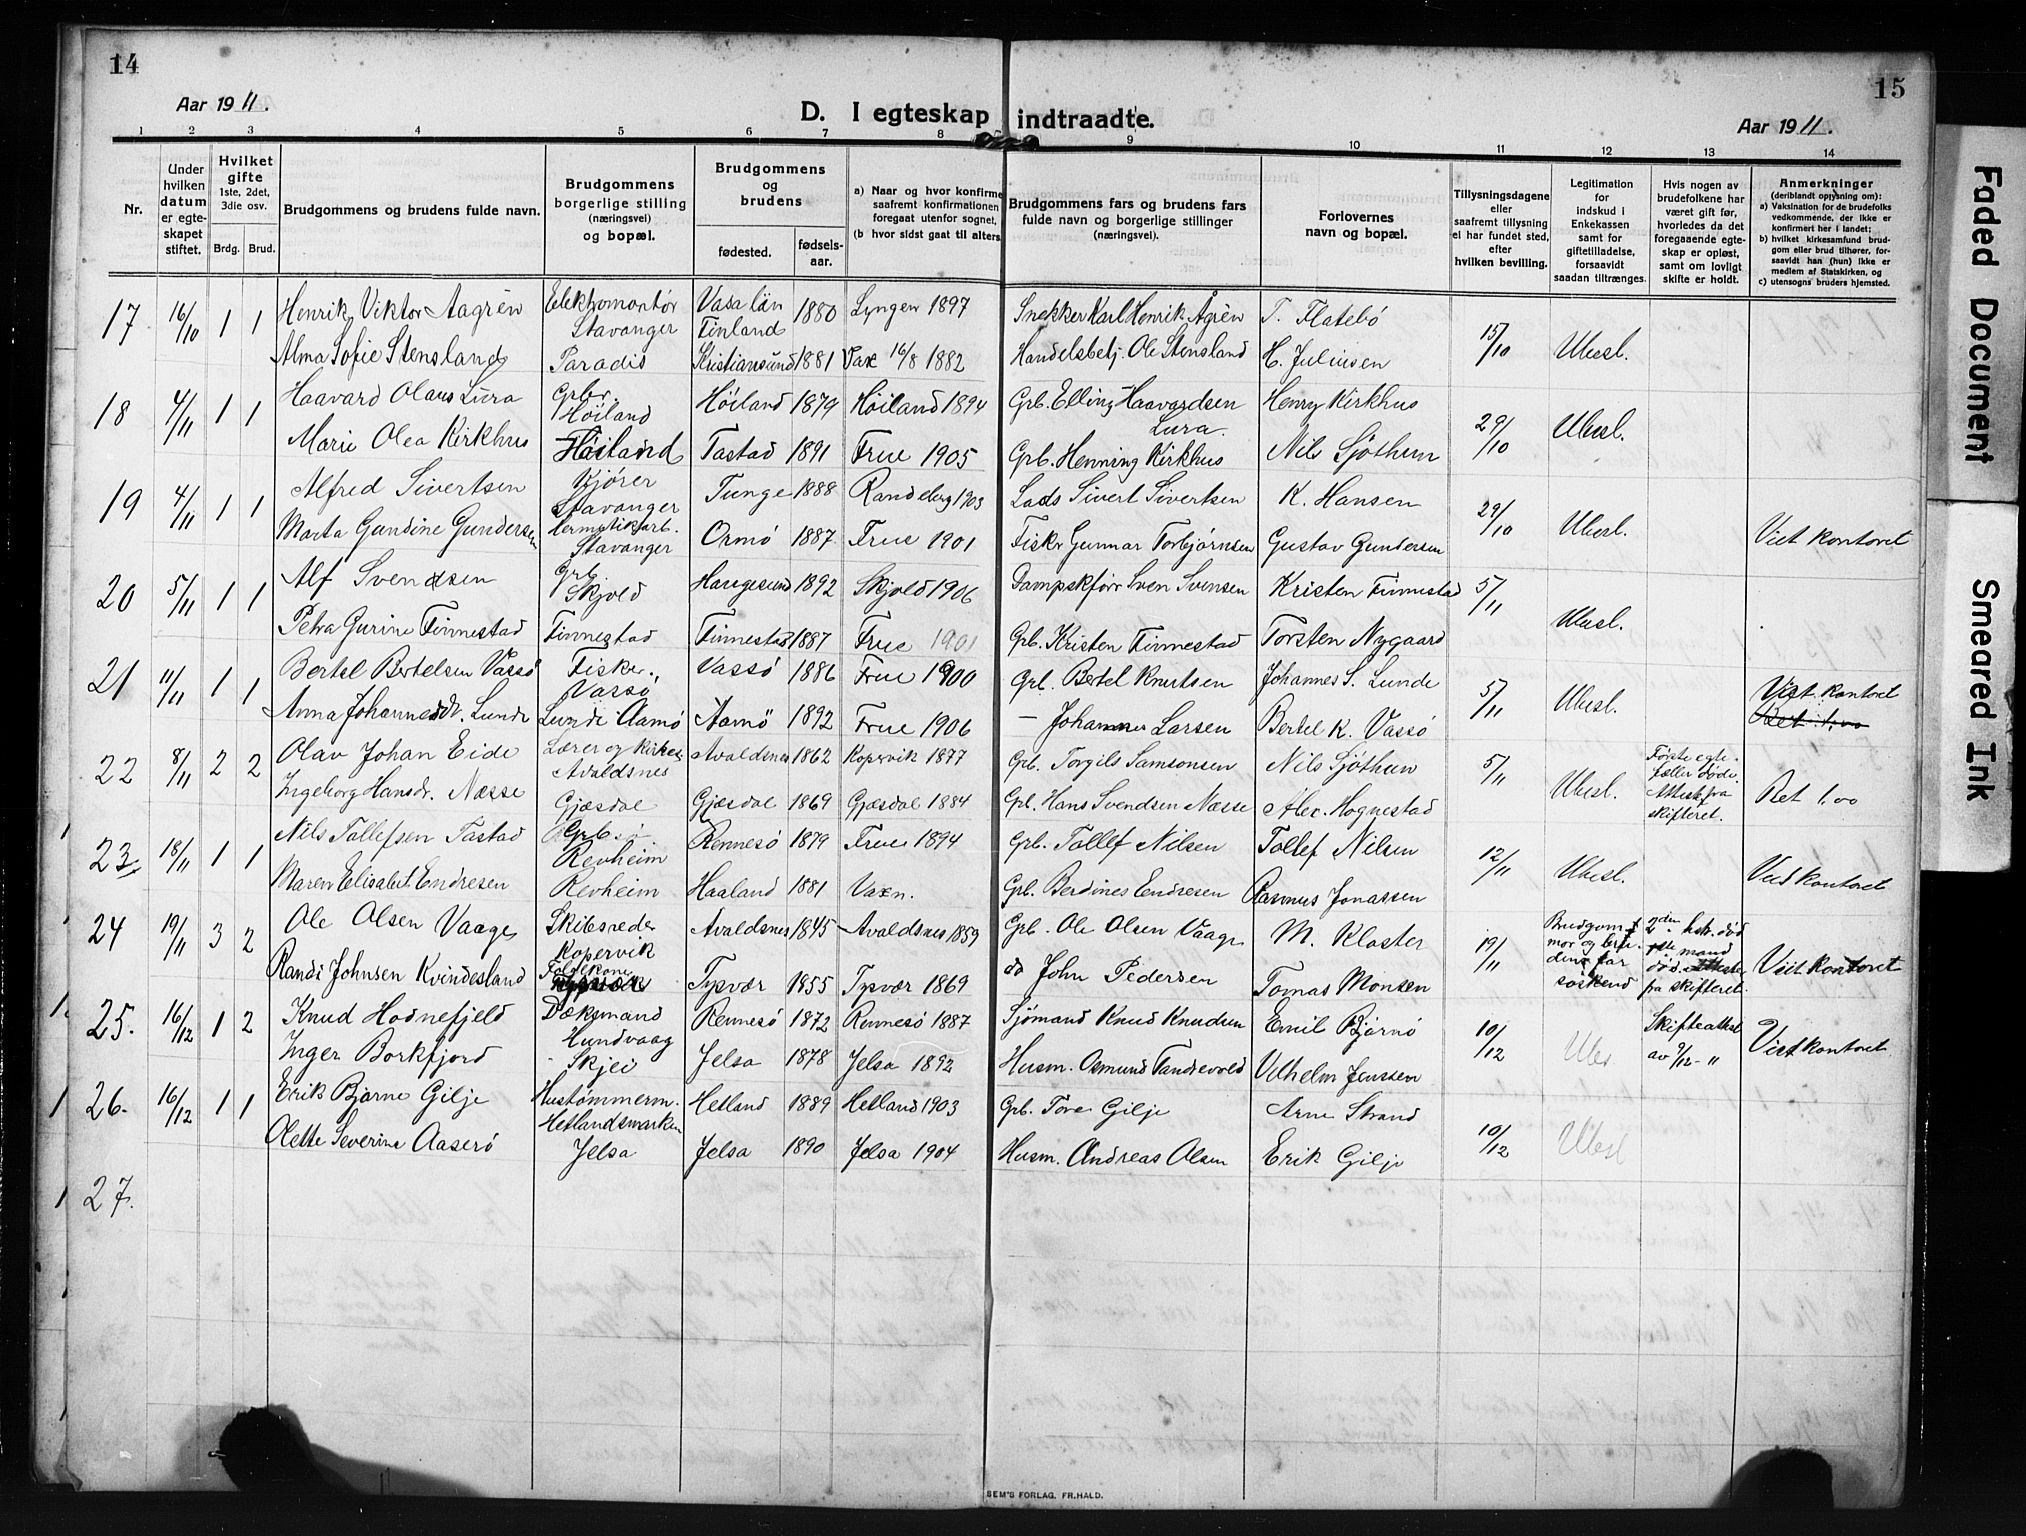 14
15
Aar 1911.
D. I egteskap indtraadte.
Aar 1911.
1 2 3 4 5 6 7 8 9 10 11 12 13 14
Nr.
Under hvilken datum er egteskapet stiftet.
Hvilket gifte 1ste, 2det, 3die osv.
Brdg. Brud.
Brudgommens og brudens fulde navn.
Brudgommens borgerlige stilling (næringsvei) og bopæl.
Brudgommens og brudens
fødested. fødsels-aar.
a) Naar og hvor konfirme saafremt konfirmationen foregaat utenfor sognet,
(b hvor sidst gaat til alters.
Brudgommens fars og brudens fars fulde navn og borgerlige stillinger (næringsvei).
Forlovernes navn og bopæl.
Tillysningsdagene eller saafremt tillysning ei har fundet sted, efter hvilken bevilling.
Legitimation for indskud i Enkekassen samt for giftetilladelse, forsaavidt saadan tiltrænges.
Hvis nogen av brudefolkene har været gift før, hvorledes da det foregaaende egteskap er opløst, samt om lovligt skifte er holdt.
Anmerkninger (deriblandt oplysning om):
a) Vaksination for de brudefolks vedkommende, der ikke er konfirmert her i landet;
b) hvilket kirkesamfund brudgom eller brud tilhører, forsaavidt han (hun) ikke er medlem af Statskirken, og
c) utensogns bruders hjemsted.
17 16/10 1 1 Henrik Viktor Aagrén Elektromontør Stavanger Vasa län Finland 1880 Lyngen 1897 Snekker Karl Henrik Ågrén T. Flatebö 15/10 Ubesl.
Alma Sofie Stensland Paradis Kristiansund 1881 Vax 16/8 1882 Handelsbetj. Ole Stensland H. Juliusen
18 4/11 1 1 Haavard Olaus Lura Grbr. Höiland Höiland 1879 Höiland 1894 Grb. Elling Haavardsen Lura. Henry Kirkhus 29/10 Ubesl.
Marie Olea Kirkhus Höiland Tastad 1891 Frue 1905 Grb. Henning Kirkhus Nils Sjöthun
19 4/11 1 1 Alfred Sivertsen Kjörer Stavanger Tunge 1888 Randeberg 1903 Lods Sivert Sivertsen K. Hansen 29/10 Ubesl.
Marta Gundine Gundersen hermetikarb. Stavanger Ormö 1887 Frue 1901 Fiskr Gunnar Torbjörnsen Gustav Gundersen Viet kontoret
20 5/11 1 1 Alf Svendsen Grb. Skjold Haugesund 1892 Skjold 1906 Dampskförr Sven Svensen Kristen Finnestad 5/11 Ubesl.
Petra Gurine Finnestad Finnestad Finnestad 1887 Frue 1901 Grb. Kristen Finnestad Torsten Nygaard
21 11/11 1 1 Bertel Bertelsen Vassö Fisker, Vassö Vassö 1886 Frue 1900 Grb. Bertel Knutsen Johannes S. Lunde 5/11 Ubesl. Viet kontoret
Anna Johannesdr. Lunde Lunde Aamö Aamö 1892 Frue 1906 — Johannes Larsen Bertel K. Vassö Ret 1,00
22 8/11 2 2 Olav Johan Eide Lærer og kirkes. Avaldsnes Avaldsnes 1862 Kopervik 1877 Grb. Torgils Samsonsen Nils Sjöthun 5/11 Ubesl. Förste egtefæller döde. Attest fra skifteret. Ret 1,00
Ingeborg Hansdr. Næsse Gjæsdal Gjæsdal 1869 Gjæsdal 1884 Grb. Hans Svendsen Næsse Alex. Hognestad
23 18/11 1 1 Nils Tollefsen Tastad Grb. Revheim Rennesö 1879 Frue 1894 Grb. Tollef Nilsen Tollef Nilsen 12/11 Ubesl. Vied kontoret
Maren Elisabet Endresen Revheim Haaland 1881 Vaxn. Grb. Berdines Endresen Rasmus Jonassen
24 19/11 3 2 Ole Olsen Vaage Skibsreder Kopervik Avaldsnes 1845 Avaldsnes 1859 Grb. Ole Olsen Vaage M. Kloster 19/11 Brudgom mor og brudens far söskend 2den hstr. död 1ste mand död. attester fra skifteret. Viet kontoret
Randi Johnsen Kvindesland Foldekone Tysvær 1855 Tysvær 1869 do John Pedersen Tomas Monsen
25. 16/12 1 2 Knud Hodnefjeld Dæksmand Hundvaag Rennesö 1872 Rennesö 1887 Sjömand Knud Knudsen Emil Bjørnö 10/12 Ubes Skifteattest av 9/12-11 Viet kontoret
Inger Borkfjord Skjei Jelsa 1878 Jelsa 1892 Husm. Osmund Tandrevold Vilhelm Jenssen
26. 16/12 1 1 Erik Bjarne Gilje Hustömmerm. Hetlandsmarken Hetland 1889 Hetland 1903 Grb. Tore Gilje Arne Strand 10/12 Ubesl
Olette Severine Aaserö Jelsa Jelsa 1890 Jelsa 1904 Husm. Andreas Olsen Erik Gilje
27.
SEM'S FORLAG, FR.HALD.
Faded Document
Smeared Ink